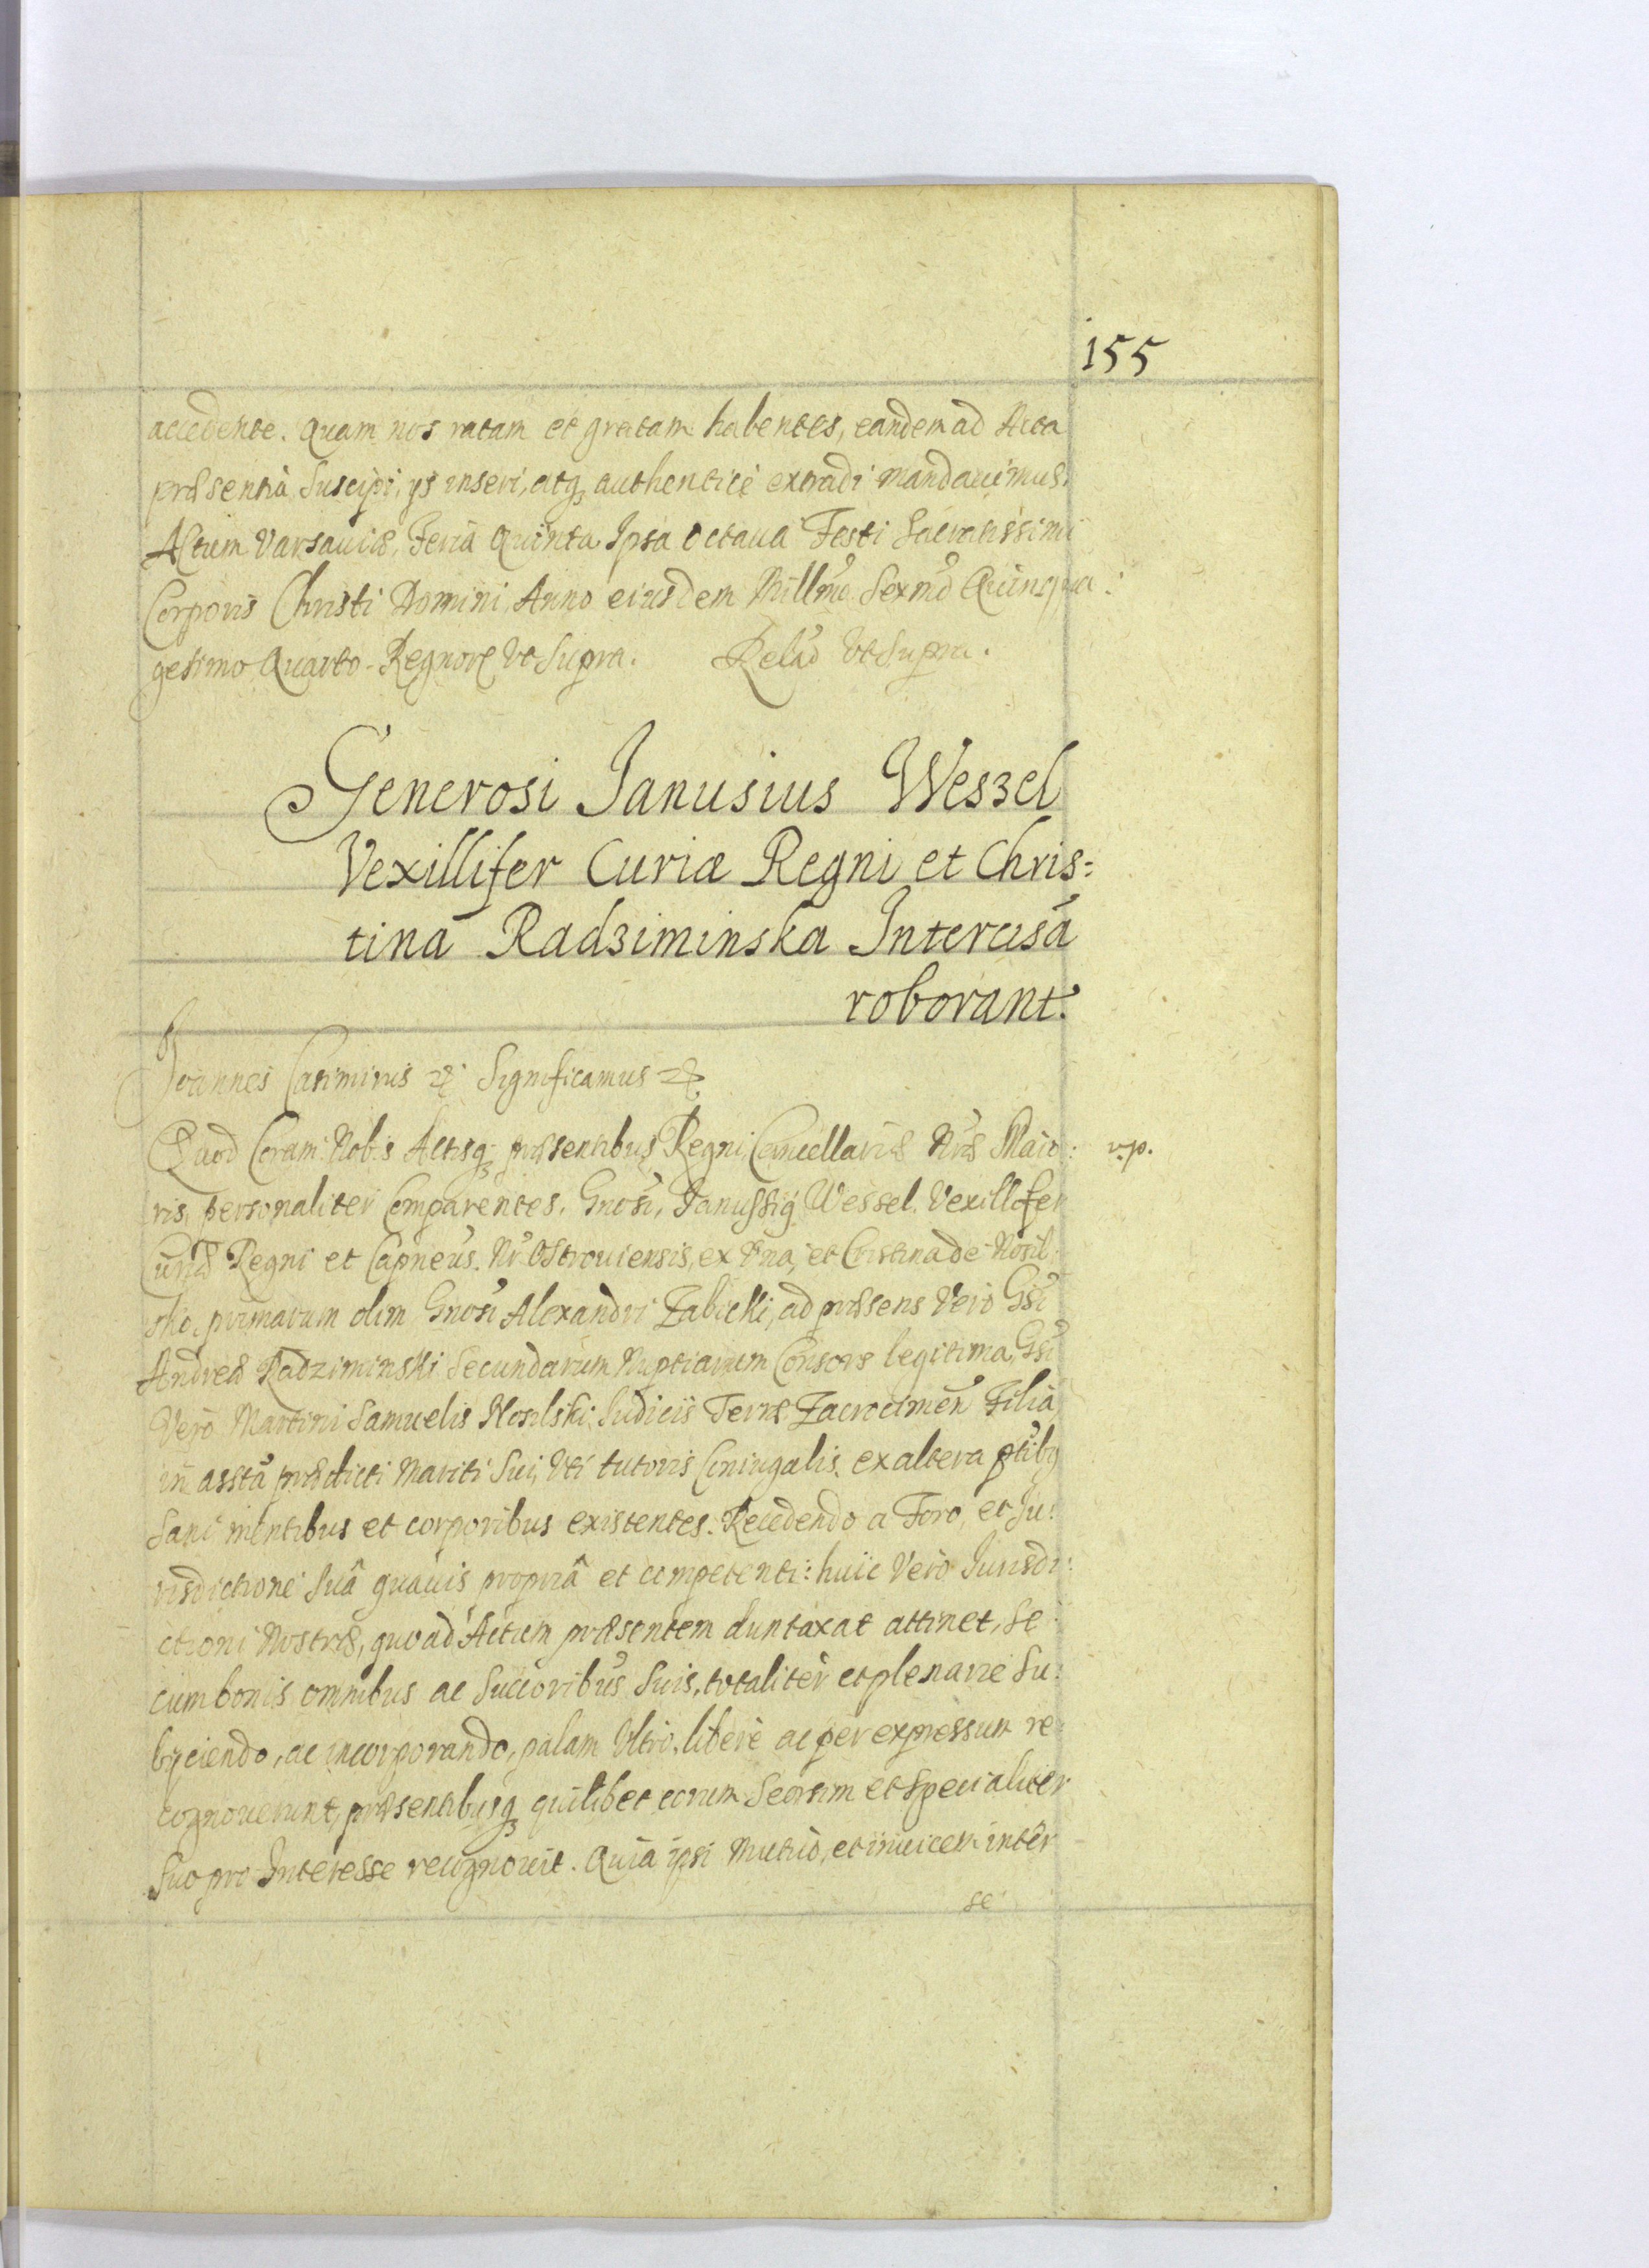 155
accedente. Quam nos ratam et gratam habentes, eandem ad Acta
præsentia suscipi, ijs inseri, atq3 authenticè extradi mandauimus.
Actum Varsauiæ, Feria Quinta Ipsa Octaua Festi Sacratissimi
Corporis Christi Domini, Anno eiusdem Millmo Sexmo Quinqua:
gesimo Quarto. Regnorꝝ Vt Supra. Relao Vt Supra.
Generosi Janusius Weszel
Vexillifer Curiæ Regni et Chris:
tina Radziminska Intercisã
roborant.
Joannes Casimirus &c. Significamus &c.
Quod Coram Nobis Actisq3 præsentibus Regni Cancellariæ Nræ Maio: v.p.
ris, personaliter Comparentes, Gnosi, Janussiꝰ Wessel, Vexillifer
Curiæ Regni et Capneus. Nr Ostrouiensis, ex Vna, et Cristina de Nosil-
sko, primarum olim Gnosi Alexandri Zabicki, ad præsens Vero Gsi
Andreæ Radziminski Secundarum Nuptiarum Consors legitima, Gsi
Vero Martini Samuelis Nosilski Judicis Terræ Zacrocimen Filia
in assta prædicti Mariti Sui, Vti tutoris Coniugalis, ex altera ptibꝰ
Sani mentibus et corporibus existentes. Recedendo a Foro, et Ju:
risdictione Suâ quauis propriâ et competenti: huic Verò Jurisdi:
ctioni Nostræ, quo ad Actum præsentem duntaxat attinet, Se
cum bonis omnibus ac Succoribus Suis, totaliter et plenarie Su:
bijciendo, ac incorporando, palam Vltro, liberè ac per expressum re:
cognouerunt, præsentibusq3 quilibet eorum Seorsim et Specialiter
Suo pro Interesse recognouit. Quia ipsi Mutuò, et inuicem inter
se